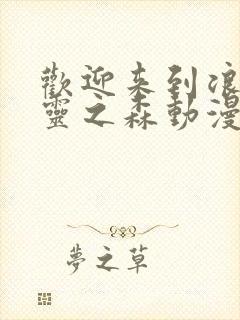 歡迎来到浪
靈之森動漫
夢之草